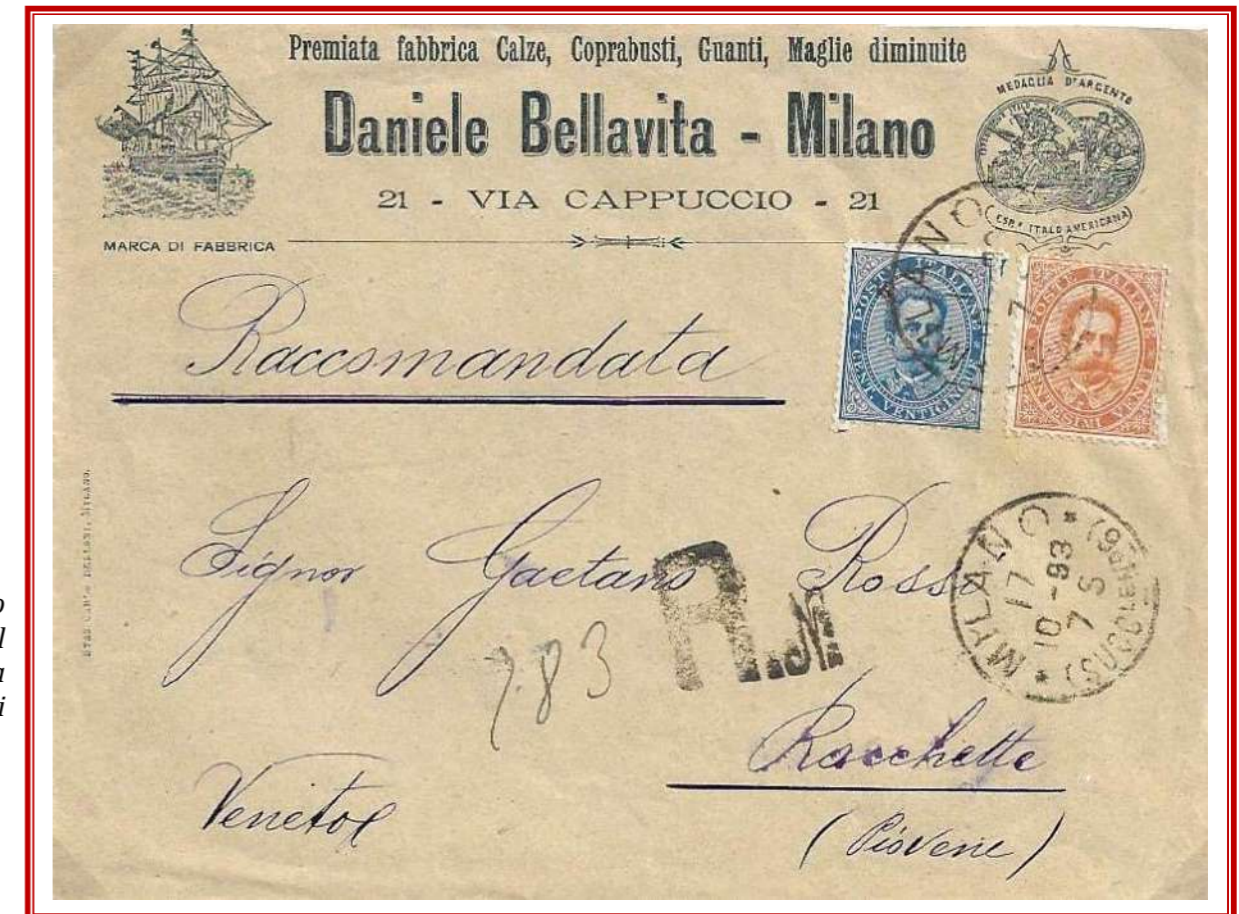 Premiata fabbrica Calze, Coprabusti, Guanti, Maglie diminuite
Daniele Bellavita - Milano
21 - VIA CAPPUCCIO - 21
MARCA DI FABBRICA
MEDAGLIA D'ARGENTO
ESP.E ITALO AMERICANA
MILANO
7
POSTE ITALIANE
CENT. VENTICINQUE
POSTE ITALIANE
CENTESIMI VENTI
Raccomandata
Signor Gaetano Rossi
R.N.
783
MILANO
17
10 - 93
7 S
(SUCCLE No6)
Rocchette
(Piovene)
Veneto
o
l
a
i